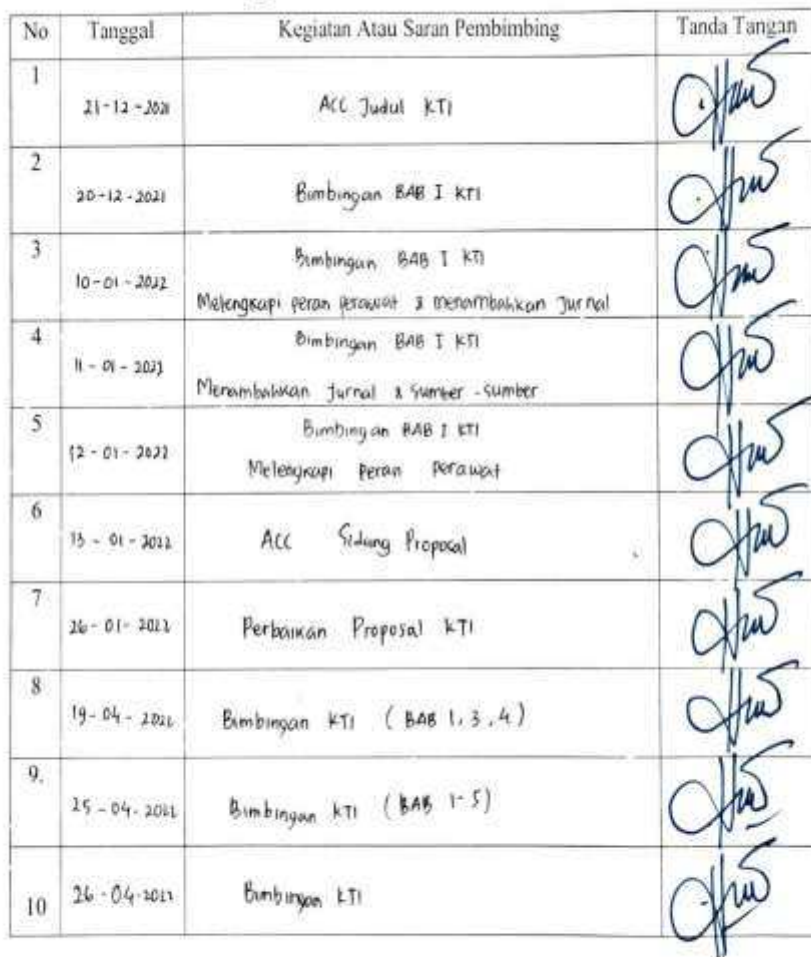 No Tanggal Kegiatan Atau Saran Pembimbing Tanda Tangan
1 21-12-2021 ACC Judul KTI
2 20-12-2021 Bimbingan BAB I KTI
3 10-01-2022 Bimbingan BAB I KTI
Melengkapi peran perawat & menambahkan Jurnal
4 11-01-2022 Bimbingan BAB I KTI
Menambahkan Jurnal & Sumber-Sumber
5 12-01-2022 Bimbingan BAB I KTI
Melengkapi Peran Perawat
6 13-01-2022 ACC Sidang Proposal
7 26-01-2022 Perbaikan Proposal KTI
8 19-04-2022 Bimbingan KTI (BAB 1, 3, 4)
9. 25-04-2022 Bimbingan KTI (BAB 1-5)
10 26-04-2022 Bimbingan KTI